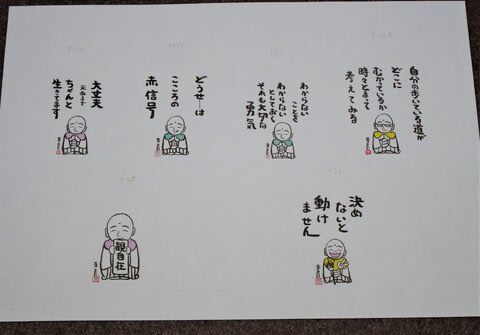 自分の歩いている道が
どこに
むかっているか
時々とまって
考えてみる
わからない
ことを
わからない
としておく
それも大切な
勇気
どうせ…は
こころの
赤信号
大丈夫
ちゃんと
生きてます
決め
ないと
動け
ません
観自在